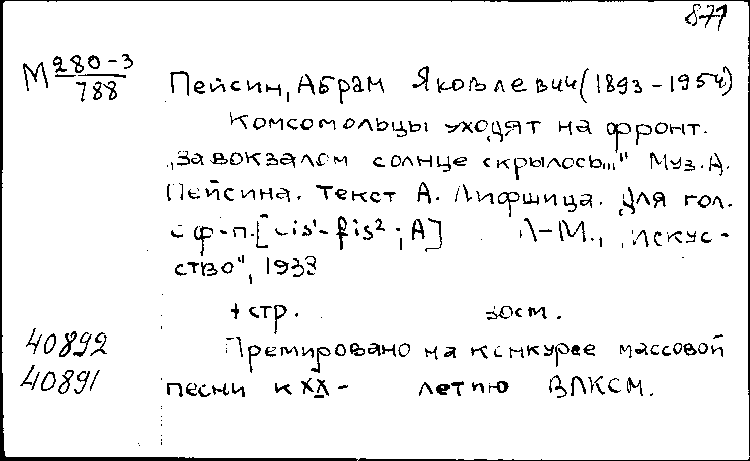 871
М 280-3
788
Пейсин, Абрам Яковлевич (1893-1954)
Комсомольцы уходят на фронт.
„За вокзалом солнце скрылось..." Муз. А.
Пейсина. Текст А. Лифшица. Для гол.
с ф-п. [cis¹-fis²; A] Л-М., „Искус-
ство", 1938
4 стр. 30см.
40892
Премировано на конкурсе массовой
40891
песни к XX- летию ВЛКСМ.